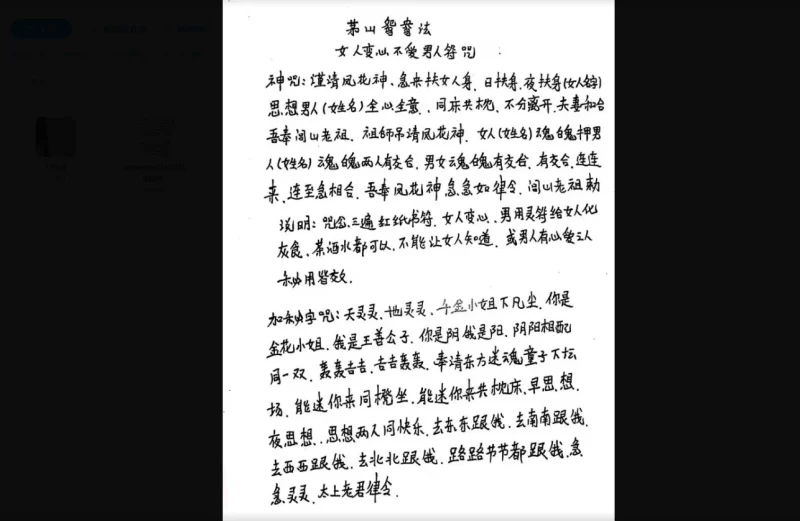 茅山鸳鸯法
女人变心不爱男人符咒
神咒：谨请风花神、急来扶女人身，日扶身，夜扶身(女人名字)
思想男人(姓名)全心全意、同床共枕，不分离开，夫妻和合
吾奉闾山老祖、祖师吊请风花神，女人(姓名)魂魄押男
人(姓名)魂魄两人有交合，男女魂魄有交合，有交合，连连
来，连至急相合，吾奉风花神急急如律令，闾山老祖敕
说明：咒念三遍红纸书符，女人变心，男用灵符给女人化
灰食、茶酒水都可以，不能让女人知道，或男人有心爱之人
秘用皆交效。
加秘字咒：天灵灵，地灵灵，千金小姐下凡尘，你是
金花小姐，我是王善公子，你是阴我是阳，阴阳相配
同一双，轰轰吉吉，吉吉轰轰，奉请东方迷魂童子下坛
场，能迷你来同櫈坐，能迷你来共枕床，早思，想，
夜思想，思想两人同快乐，去东东跟我，去南南跟我，
去西西跟我，去北北跟我，路路节节都跟我，急
急灵灵，太上老君律令．